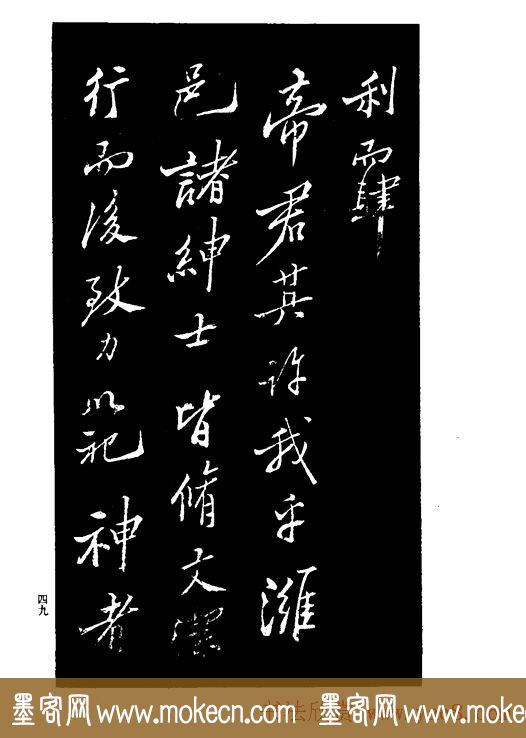 利而肆
帝君其許我乎濰
邑諸紳士皆脩文潔
行而後致力以祀神者
四九
墨客网 www.mokecn.com 墨客网 www.mokecn.com